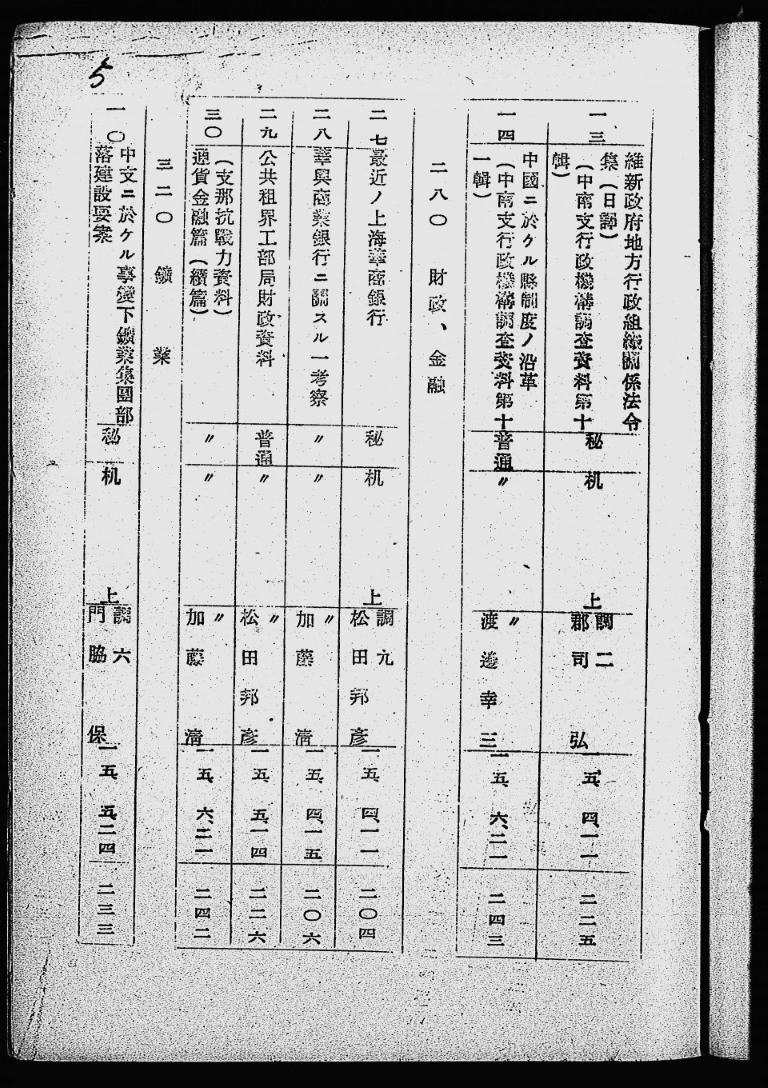 5
一三
維新政府地方行政組織關係法令
集(日譯)
(中南支行政機構調査資料第十
輯)
秘
机
上
調二
郡司弘
一五、四、一一
二二五
一四
中國ニ於ケル縣制度ノ沿革
(中南支行政機構調査資料第十
一輯)
普通
〃
〃
渡邊幸三
一五、六、二一
二四三
二八〇 財政、金融
二七
最近ノ上海華商銀行
秘
机
上
調九
松田邦彥
一五、四、一一
二〇四
二八
華興商業銀行ニ關スル一考察
〃
〃
〃
加藤淸
一五、四、一五
二〇六
二九
公共租界工部局財政資料
普通
〃
〃
松田邦彥
一五、五、一四
二二六
三〇
(支那抗戰力資料)
通貨金融篇(續篇)
〃
〃
〃
加藤淸
一五、六、二一
二四二
三二〇 鑛業
一〇
中支ニ於ケル事變下鑛業集團部
落建設要案
秘
机
上
調六
門脇保
一五、五、二四
二三三